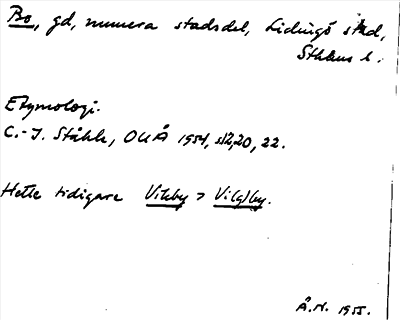 Bo, gd, numera stadsdel, Lidingö stad,
Sthlms l.
Etymologi.
C.-I. Ståhle, OUÅ 1954, s. 12, 20, 22.
Hette tidigare Vikby > Vilgby.
Å.N. 1955.